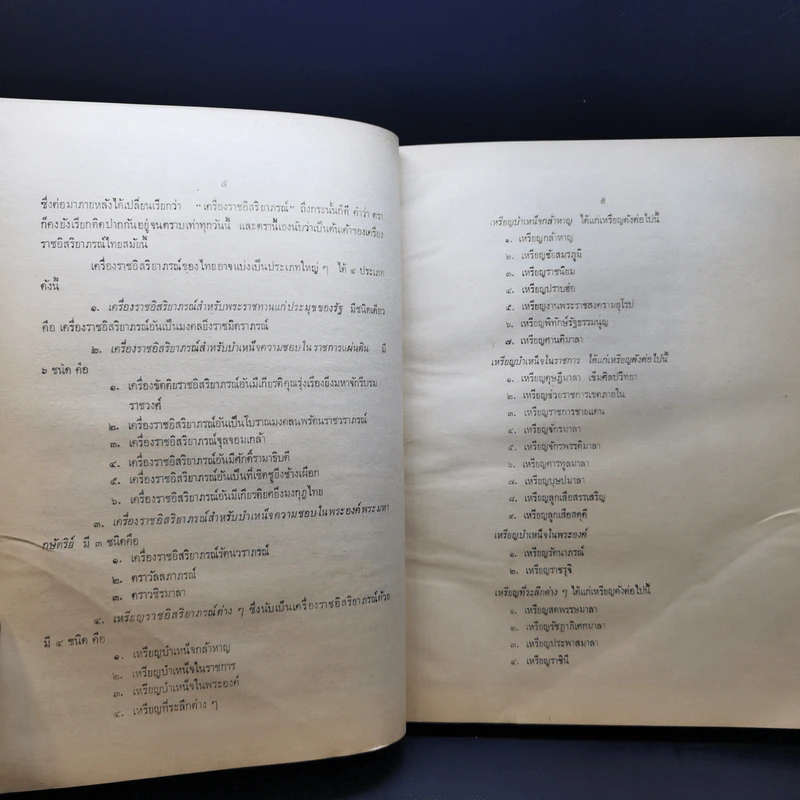 ๔
ซึ่งต่อมาภายหลังได้เปลี่ยนเรียกว่า "เครื่องราชอิสริยาภรณ์" ถึงกระนั้นก็ดี คำว่า ตรา
ก็คงยังเรียกติดปากกันอยู่จนตราบเท่าทุกวันนี้ และตรานี้เองนับว่าเป็นต้นเค้าของเครื่อง
ราชอิสริยาภรณ์ไทยสมัยนี้
เครื่องราชอิสริยาภรณ์ของไทยอาจแบ่งเป็นประเภทใหญ่ ๆ ได้ ๔ ประเภท
ดังนี้
๑. เครื่องราชอิสริยาภรณ์สำหรับพระราชทานแก่ประมุขของรัฐ มีชนิดเดียว
คือ เครื่องราชอิสริยาภรณ์อันเป็นมงคลยิ่งราชมิตราภรณ์
๒. เครื่องราชอิสริยาภรณ์สำหรับบำเหน็จความชอบในราชการแผ่นดิน มี
๖ ชนิด คือ
๑. เครื่องขัตติยราชอิสริยาภรณ์อันมีเกียรติคุณรุ่งเรืองยิ่งมหาจักรีบรม
ราชวงศ์
๒. เครื่องราชอิสริยาภรณ์อันเป็นโบราณมงคลนพรัตนราชวราภรณ์
๓. เครื่องราชอิสริยาภรณ์จุลจอมเกล้า
๔. เครื่องราชอิสริยาภรณ์อันมีศักดิ์รามาธิบดี
๕. เครื่องราชอิสริยาภรณ์อันเป็นที่เชิดชูยิ่งช้างเผือก
๖. เครื่องราชอิสริยาภรณ์อันมีเกียรติยศยิ่งมงกุฎไทย
๓. เครื่องราชอิสริยาภรณ์สำหรับบำเหน็จความชอบในพระองค์พระมหา
กษัตริย์ มี ๓ ชนิดคือ
๑. เครื่องราชอิสริยาภรณ์รัตนวราภรณ์
๒. ตราวัลลภาภรณ์
๓. ตราวชิรมาลา
๔. เหรียญราชอิสริยาภรณ์ต่าง ๆ ซึ่งนับเป็นเครื่องราชอิสริยาภรณ์ด้วย
มี ๔ ชนิด คือ
๑. เหรียญบำเหน็จกล้าหาญ
๒. เหรียญบำเหน็จในราชการ
๓. เหรียญบำเหน็จในพระองค์
๔. เหรียญที่ระลึกต่าง ๆ
๕
เหรียญบำเหน็จกล้าหาญ ได้แก่เหรียญดังต่อไปนี้
๑. เหรียญกล้าหาญ
๒. เหรียญชัยสมรภูมิ
๓. เหรียญราชนิยม
๔. เหรียญปราบฮ่อ
๕. เหรียญงานพระราชสงครามยุโรป
๖. เหรียญพิทักษ์รัฐธรรมนูญ
๗. เหรียญศานติมาลา
เหรียญบำเหน็จในราชการ ได้แก่เหรียญดังต่อไปนี้
๑. เหรียญดุษฎีมาลา เข็มศิลปวิทยา
๒. เหรียญช่วยราชการเขตภายใน
๓. เหรียญราชการชายแดน
๔. เหรียญจักรมาลา
๕. เหรียญจักรพรรดิมาลา
๖. เหรียญศารทูลมาลา
๗. เหรียญบุษปมาลา
๘. เหรียญลูกเสือสรรเสริญ
๙. เหรียญลูกเสือสดุดี
เหรียญบำเหน็จในพระองค์
๑. เหรียญรัตนาภรณ์
๒. เหรียญราชรุจิ
เหรียญที่ระลึกต่าง ๆ ได้แก่เหรียญดังต่อไปนี้
๑. เหรียญสตพรรษมาลา
๒. เหรียญรัชฎาภิเศกมาลา
๓. เหรียญประพาสมาลา
๔. เหรียญราชินี